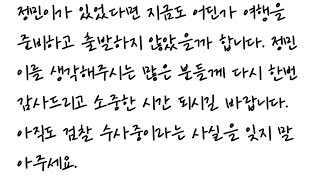 정민이가 있었다면 지금도 어딘가 여행을
준비하고 출발하지 않았을까 합니다. 정민
이를 생각해주시는 많은 분들께 다시 한번
감사드리고 소중한 시간 되시길 바랍니다.
아직도 검찰 수사중이라는 사실을 잊지 말
아주세요.